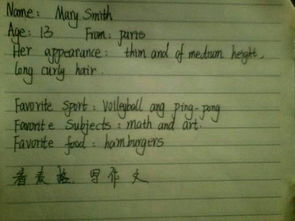 Name: Mary Smith
Age: 13 From: paris
Her appearance: thim and of medium height,
long curly hair.
Favorite sport: Volleyball ang ping-pong
Favorite Subjects: math and art.
Favorite food: hamburgers
看表格 写作文